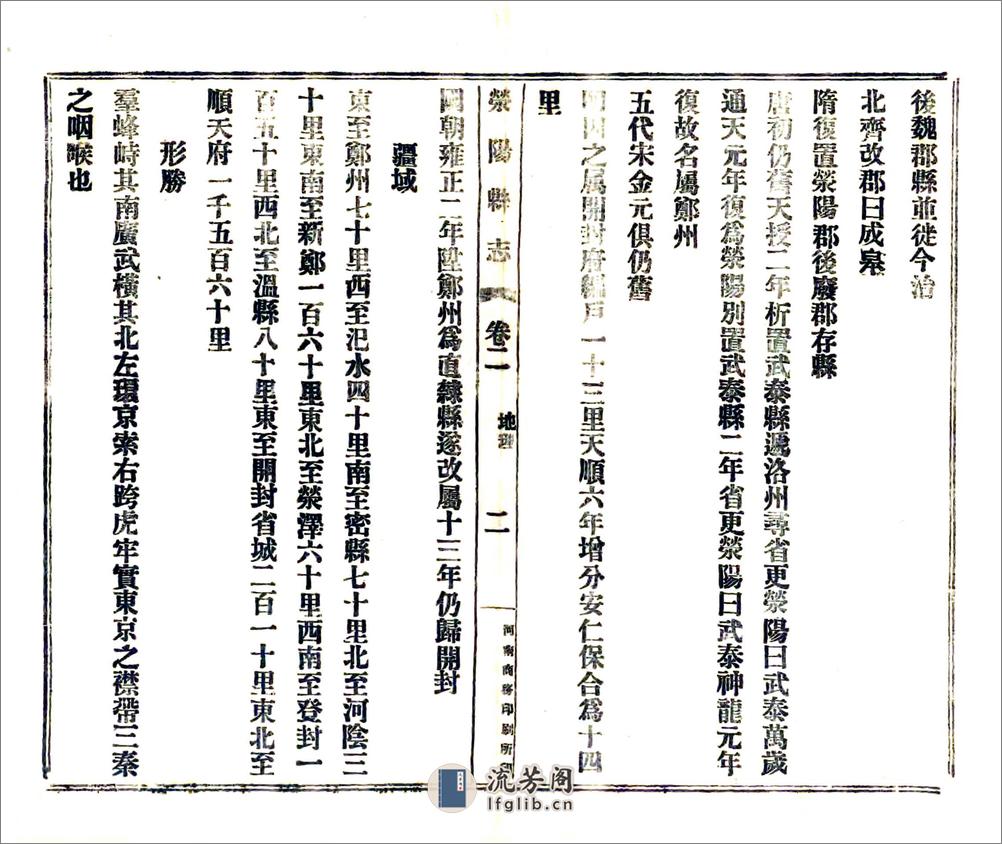 後魏郡縣並徙今治
北齊改郡曰成皋
隋復置滎陽郡後廢郡存縣
唐初仍舊天授二年析置武泰縣遞洛州尋省更滎陽曰武泰萬歲
通天元年復爲滎陽別置武泰縣二年省更滎陽曰武泰神龍元年
復故名屬鄭州
五代宋金元俱仍舊
明因之屬開封府編戶一十三里天順六年增分安仁保合爲十四
里
滎陽縣志 卷二 地理 二 河南商務印刷所
國朝雍正二年陞鄭州爲直隸縣遂改屬十三年仍歸開封
疆域
東至鄭州七十里西至汜水四十里南至密縣七十里北至河陰三
十里東南至新鄭一百六十里東北至滎澤六十里西南至登封一
百五十里西北至溫縣八十里東至開封省城二百一十里東北至
順天府一千五百六十里
形勝
羣峰峙其南廣武橫其北左環京索右跨虎牢實東京之襟帶三秦
之咽喉也
流芳阁
lfglib.cn